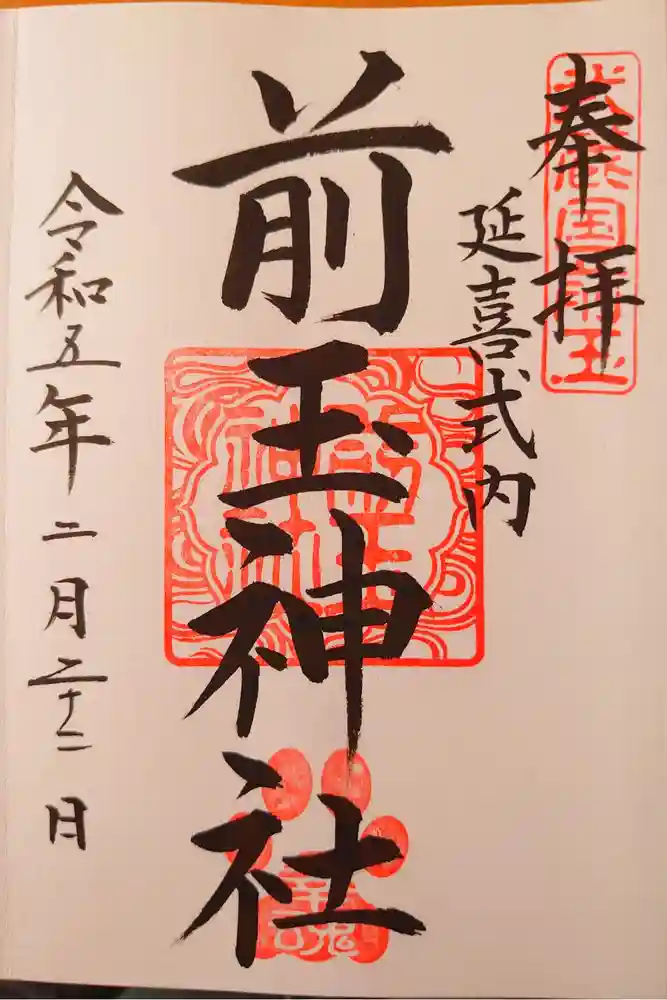 奉拝
武蔵国埼玉
延喜式内
前玉神社
前玉神社
令和五年二月二十二日